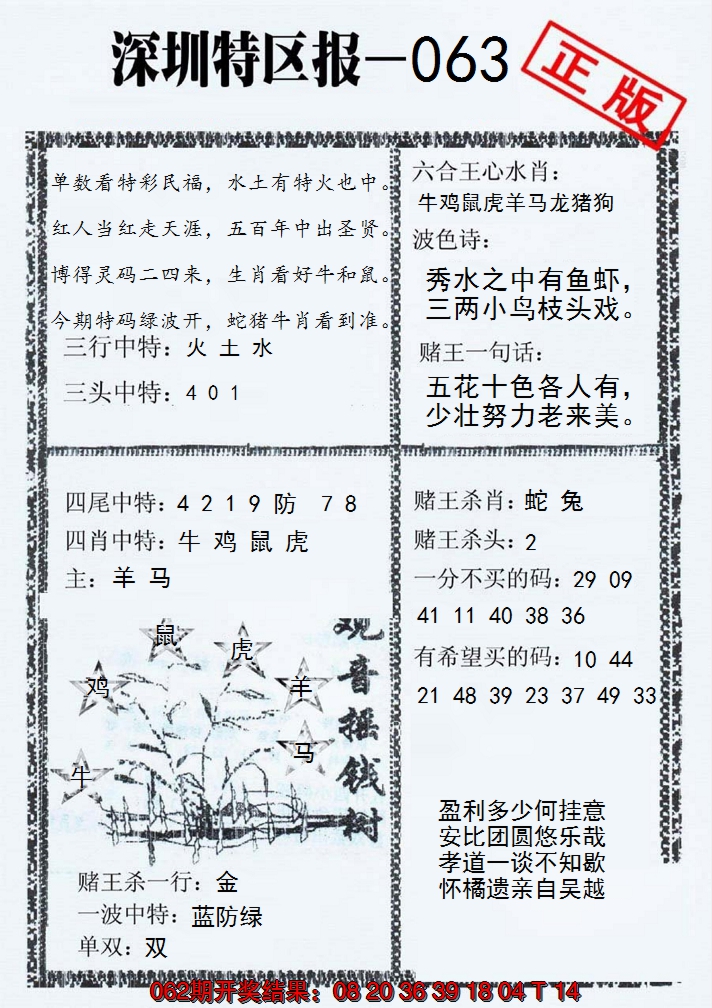 深圳特区报—063
正版
单数看特彩民福，水土有特火也中。
红人当红走天涯，五百年中出圣贤。
博得灵码二四来，生肖看好牛和鼠。
今期特码绿波开，蛇猪牛肖看到准。
三行中特：火 土 水
三头中特：4 0 1
六合王心水肖：
牛鸡鼠虎羊马龙猪狗
波色诗：
秀水之中有鱼虾，
三两小鸟枝头戏。
赌王一句话：
五花十色各人有，
少壮努力老来美。
四尾中特：4 2 1 9 防 7 8
四肖中特：牛 鸡 鼠 虎
主：羊 马
鼠
虎
鸡
羊
马
牛
观音摇钱树
赌王杀一行：金
一波中特：蓝防绿
单双：双
赌王杀肖：蛇 兔
赌王杀头：2
一分不买的码：29 09
41 11 40 38 36
有希望买的码：10 44
21 48 39 23 37 49 33
盈利多少何挂意
安比团圆悠乐哉
孝道一谈不知歇
怀橘遗亲自吴越
062期开奖结果：08 20 36 39 18 04 T 14